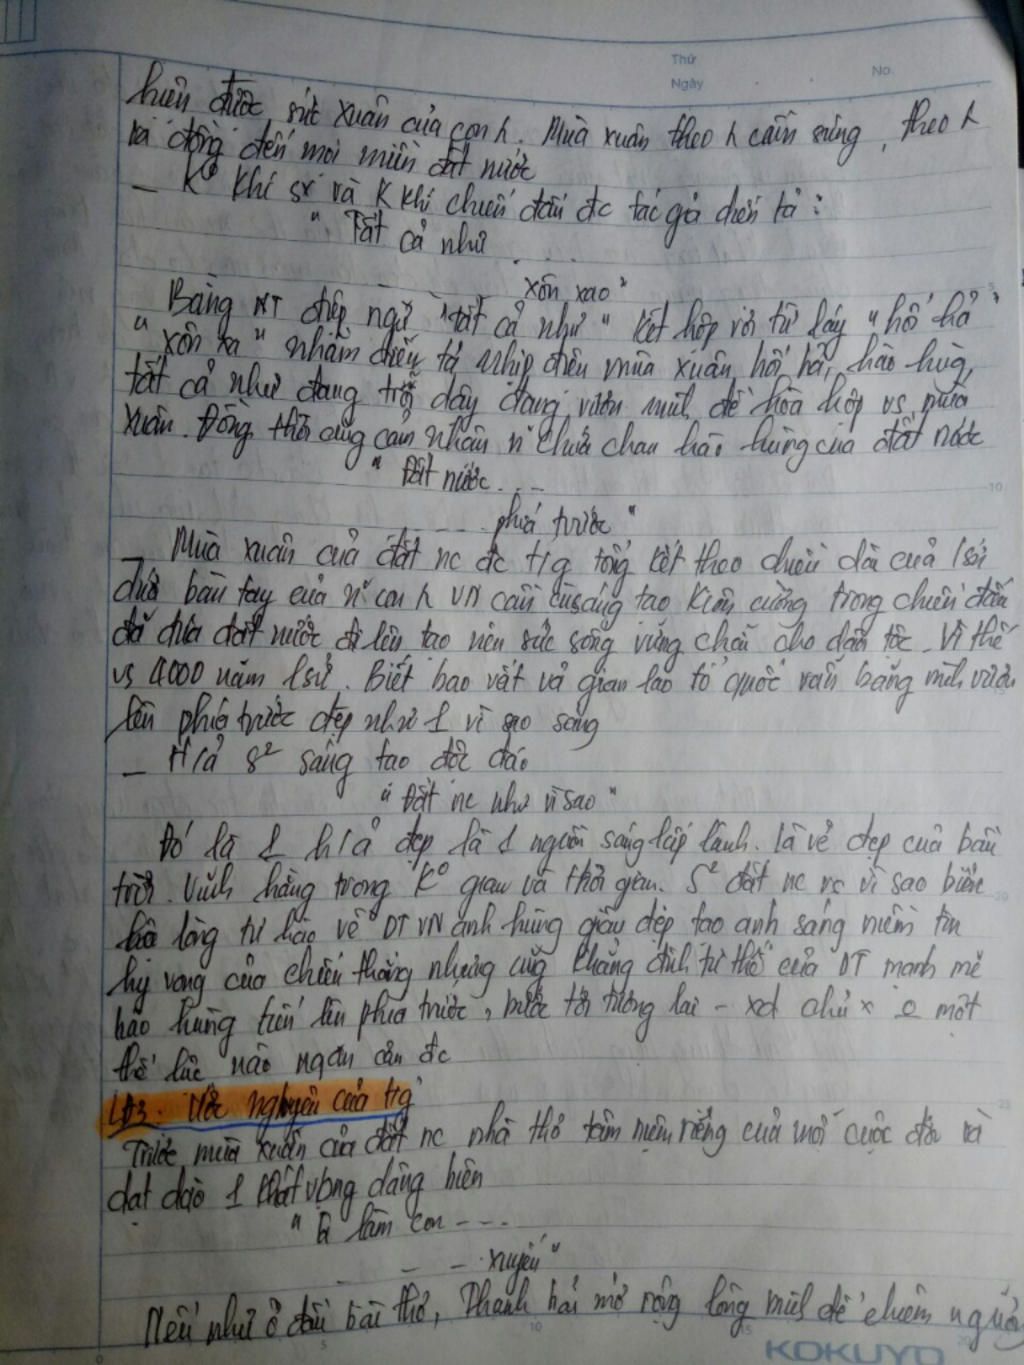 Thứ
Ngày
No.
hiện được sức xuân của con h. Mùa xuân theo h cầm súng, theo h
ra đồng đến mọi miền đất nước
– K⁰ khí sx và K khí chiến đấu đc tác giả diễn tả :
" Tất cả như
. . . .
xôn xao"
Bằng NT điệp ngữ "tất cả như" kết hợp với từ láy "hối hả"
"xôn xa" nhằm diễn tả nhịp điệu mùa xuân hối hả, hào hùg,
tất cả như đang trỗi dậy đang vươn mình để hòa hợp vs mùa
xuân. Đồng thời cũg cảm nhận n~ chứa chan hào hùng của đất nước
" Đất nước . . –
– – – phía trước "
– Mùa xuân của đất nc đc t/g tổng kết theo chiều dài của lsử
đưa bàn tay của n~ con h VN cần cù sáng tạo kiên cường trong chiến đấu
đã đưa đất nước đi lên tạo nên sức sống vững chãi cho dân tộc. Vì thế
vs 4000 năm lsử. Biết bao vất vả gian lao tổ quốc vẫn băng mình vươn
lên phía trước đẹp như 1 vì sao sáng
– H/ả s² sáng tạo độc đáo
" Đất nc như vì sao "
Đó là 1 h/ả đẹp là 1 nguồn sáng lấp lánh. là vẻ đẹp của bầu
trời. Vĩnh hằng trong K⁰ gian và thời gian. S² đất nc vs vì sao biểu
lộ lòng tự hào về DT VN anh hùng giàu đẹp tạo ánh sáng niềm tin
hy vọng của chiến thắng nhưng cũg khẳng định tư thế của DT mạnh mẽ
hào hùng tiến lên phía trước, bước tới tương lai – xd chủ x 0 một
thế lực nào ngăn cản đc
LĐ3. Ước nguyện của t/g
Trước mùa xuân của đất nc nhà thơ tâm niệm riêng của mỗi cuộc đời và
dạt dào 1 khát vọng dâng hiến
" Ta làm con - - -.
– – – xuyến"
Nếu như ở đầu bài thơ, Thanh Hải mở rộng lòng mình để chiêm ngưỡng
KOKUYO